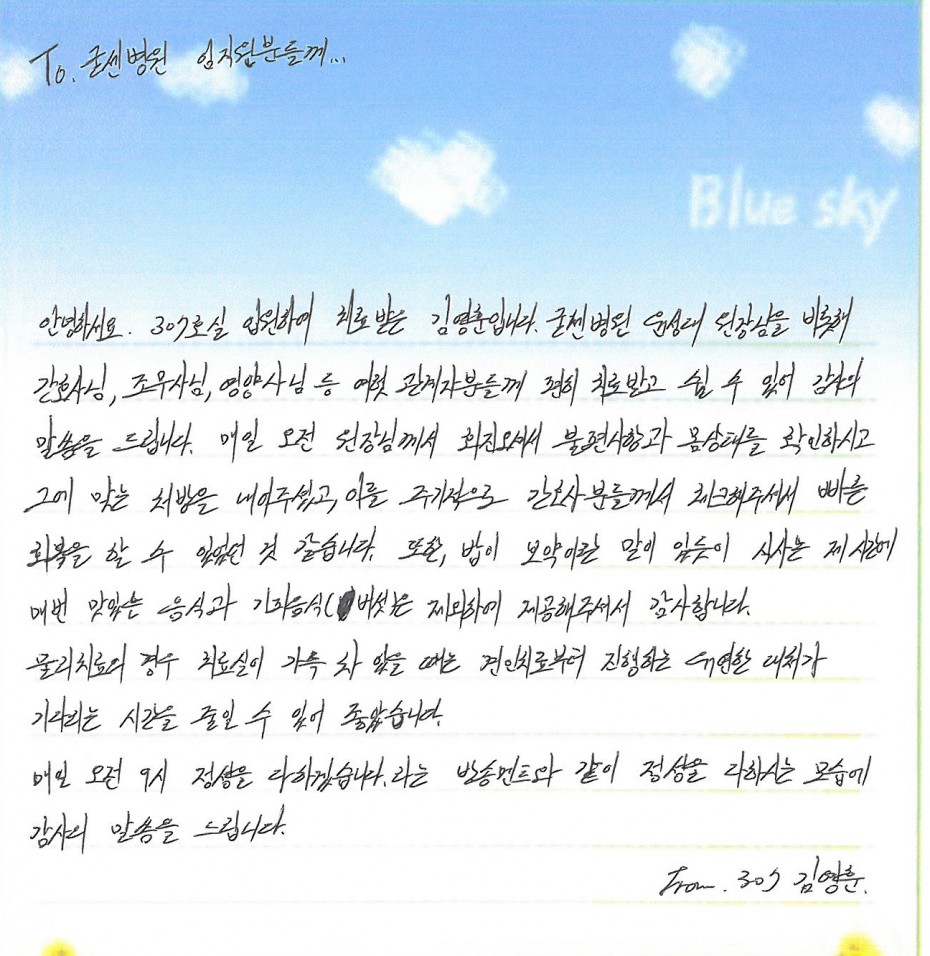 To. 굳센병원 임직원분들께...
Blue sky
안녕하세요. 307호실 입원하여 치료받은 김영훈입니다. 굳센병원 윤성대 원장님을 비롯해
간호사님, 조무사님, 영양사님 등 여럿 관계자분들께 편히 치료받고 쉴 수 있어 감사의
말씀을 드립니다. 매일 오전 원장님께서 회진오셔서 불편사항과 몸상태를 확인하시고
그에 맞는 처방을 내어주셨고, 이를 주기적으로 간호사분들께서 체크해주셔서 빠른
회복을 할 수 있었던 것 같습니다. 또한, 밥이 보약이란 말이 있듯이 식사는 제시간에
매번 맛있는 음식과 기피음식(버섯)은 제외하여 제공해주셔서 감사합니다.
물리치료의 경우 치료실이 가득 차 있을 때는 견인치료부터 진행하는 유연한 대처가
기다리는 시간을 줄일 수 있어 좋았습니다.
매일 오전 9시 정성을 다하겠습니다.라는 방송멘트와 같이 정성을 다하시는 모습에
감사의 말씀을 드립니다.
From. 307 김영훈.